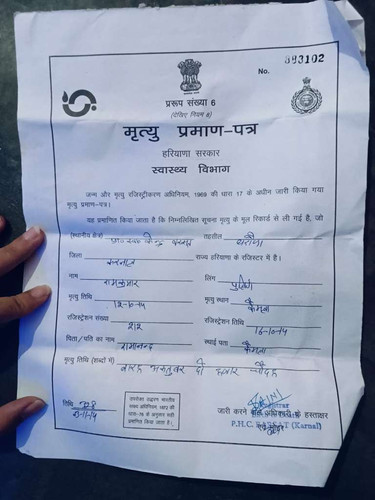 No. 593102
प्ररूप संख्या 6
(देखिए नियम 8)
मृत्यु प्रमाण-पत्र
हरियाणा सरकार
स्वास्थ्य विभाग
जन्म और मृत्यु रजिस्ट्रीकरण अधिनियम, 1969 की धारा 17 के अधीन जारी किया गया
मृत्यु प्रमाण-पत्र।
यह प्रमाणित किया जाता है कि निम्नलिखित सूचना मृत्यु के मूल रिकार्ड से ली गई है, जो
(स्थानीय क्षेत्र) तहसील घरौंडा
जिला करनाल राज्य हरियाणा के रजिस्टर में है।
नाम रामकुमार लिंग पुलिंग
मृत्यु तिथि 12-10-14 मृत्यु स्थान कैमला
रजिस्ट्रेशन संख्या रजिस्ट्रेशन तिथि 16-10-14
पिता/पति का नाम रामानन्द स्थाई पता कैमला
मृत्यु तिथि (शब्दों में) बारह अक्तूबर दो हजार चौदह
तिथि
जारी करने वाले अधिकारी के हस्ताक्षर
P.H.C. (Karnal)